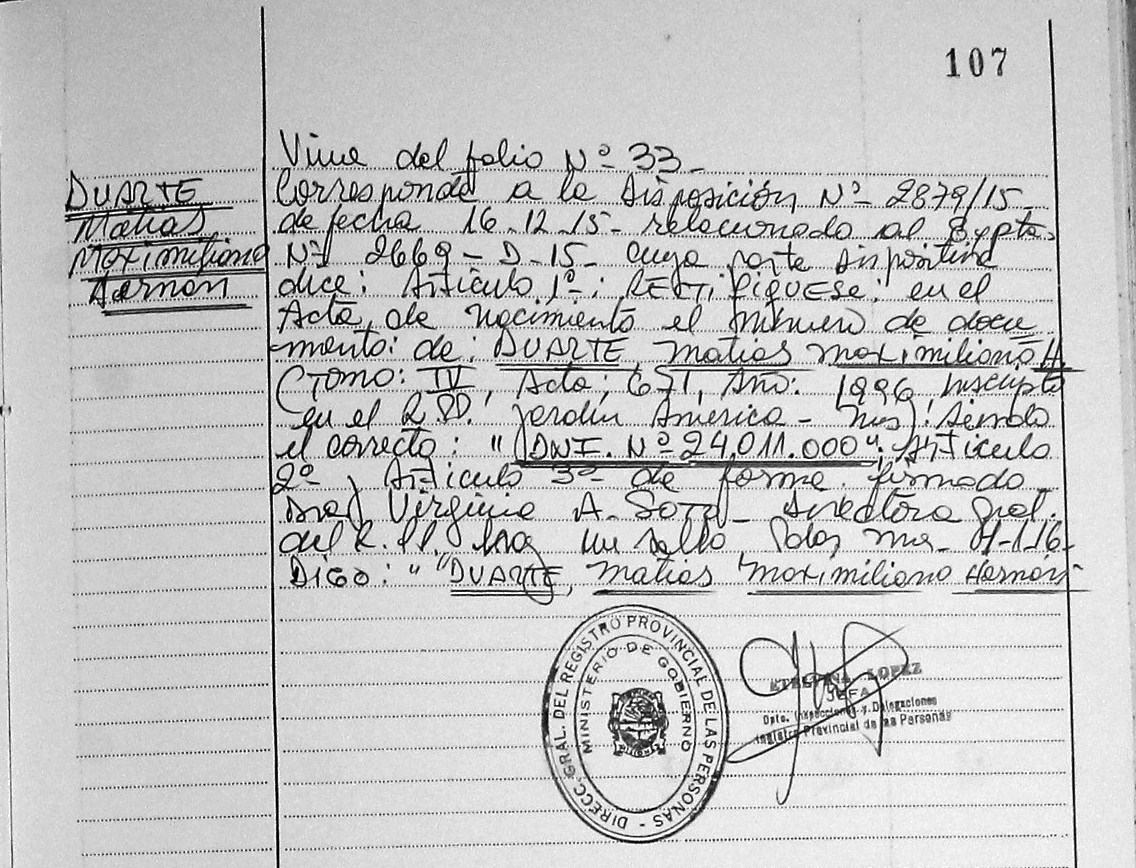 107
DUARTE
Matias
Maximiliano
Hernán
Viene del folio Nº 33-
Corresponde a la Disposición Nº 2879/15-
de fecha 16-12-15- relacionado al Expte.
Nº 2669-D-15- cuya parte dispositiva
dice: Artículo 1º: RECTIFIQUESE: en el
Acta de nacimiento el número de docu
mento: de: DUARTE, Matias Maximiliano H.
(TOMO: IV, Acta: 671, Año: 1996 inscripta
en el R.P.P. Jardin America - Mnes): siendo
el correcto: "DNI. Nº 24.011.000". Artículo
2º, Artículo 3º de forma. firmado
Virginia A. Directora Gral.
del R. un sello, Pdas Mnes- -1-16-
Digo: "DUARTE, Matias Maximiliano Hernán-
DIRECC. GRAL. DEL REGISTRO PROVINCIAL DE LAS PERSONAS -
MINISTERIO DE GOBIERNO
MISIONES
LOPEZ
JEFA
Dpto. Inspecciones y Delegaciones
Registro Provincial de las Personas